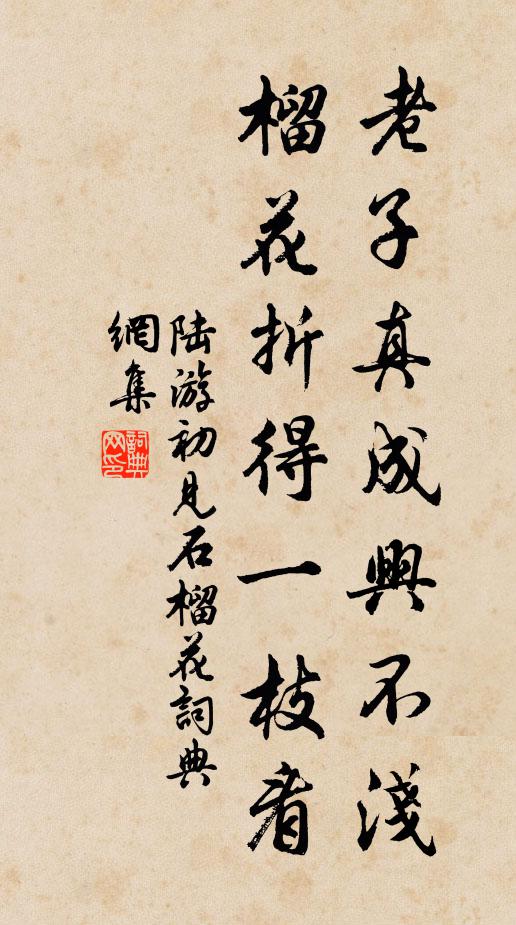 老子真成興不淺
榴花折得一枝看
陆游初見石榴花詞典
網集
詞典网印